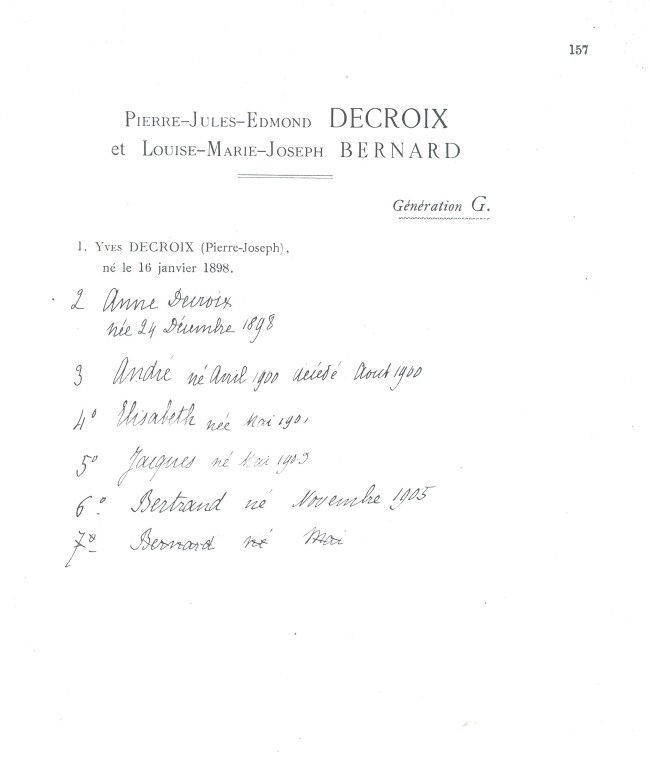 157
PIERRE-JULES-EDMOND DECROIX
et LOUISE-MARIE-JOSEPH BERNARD
Génération G.
1. YVES DECROIX (Pierre-Joseph),
né le 16 janvier 1898.
2 Anne Decroix
née 24 Décembre 1898
3 André né Avril 1900 décédé Aout 1900
4° Elisabeth née Mai 1901
5° Jacques né Mai 1903
6° Bertrand né Novembre 1905
7° Bernard né Mai